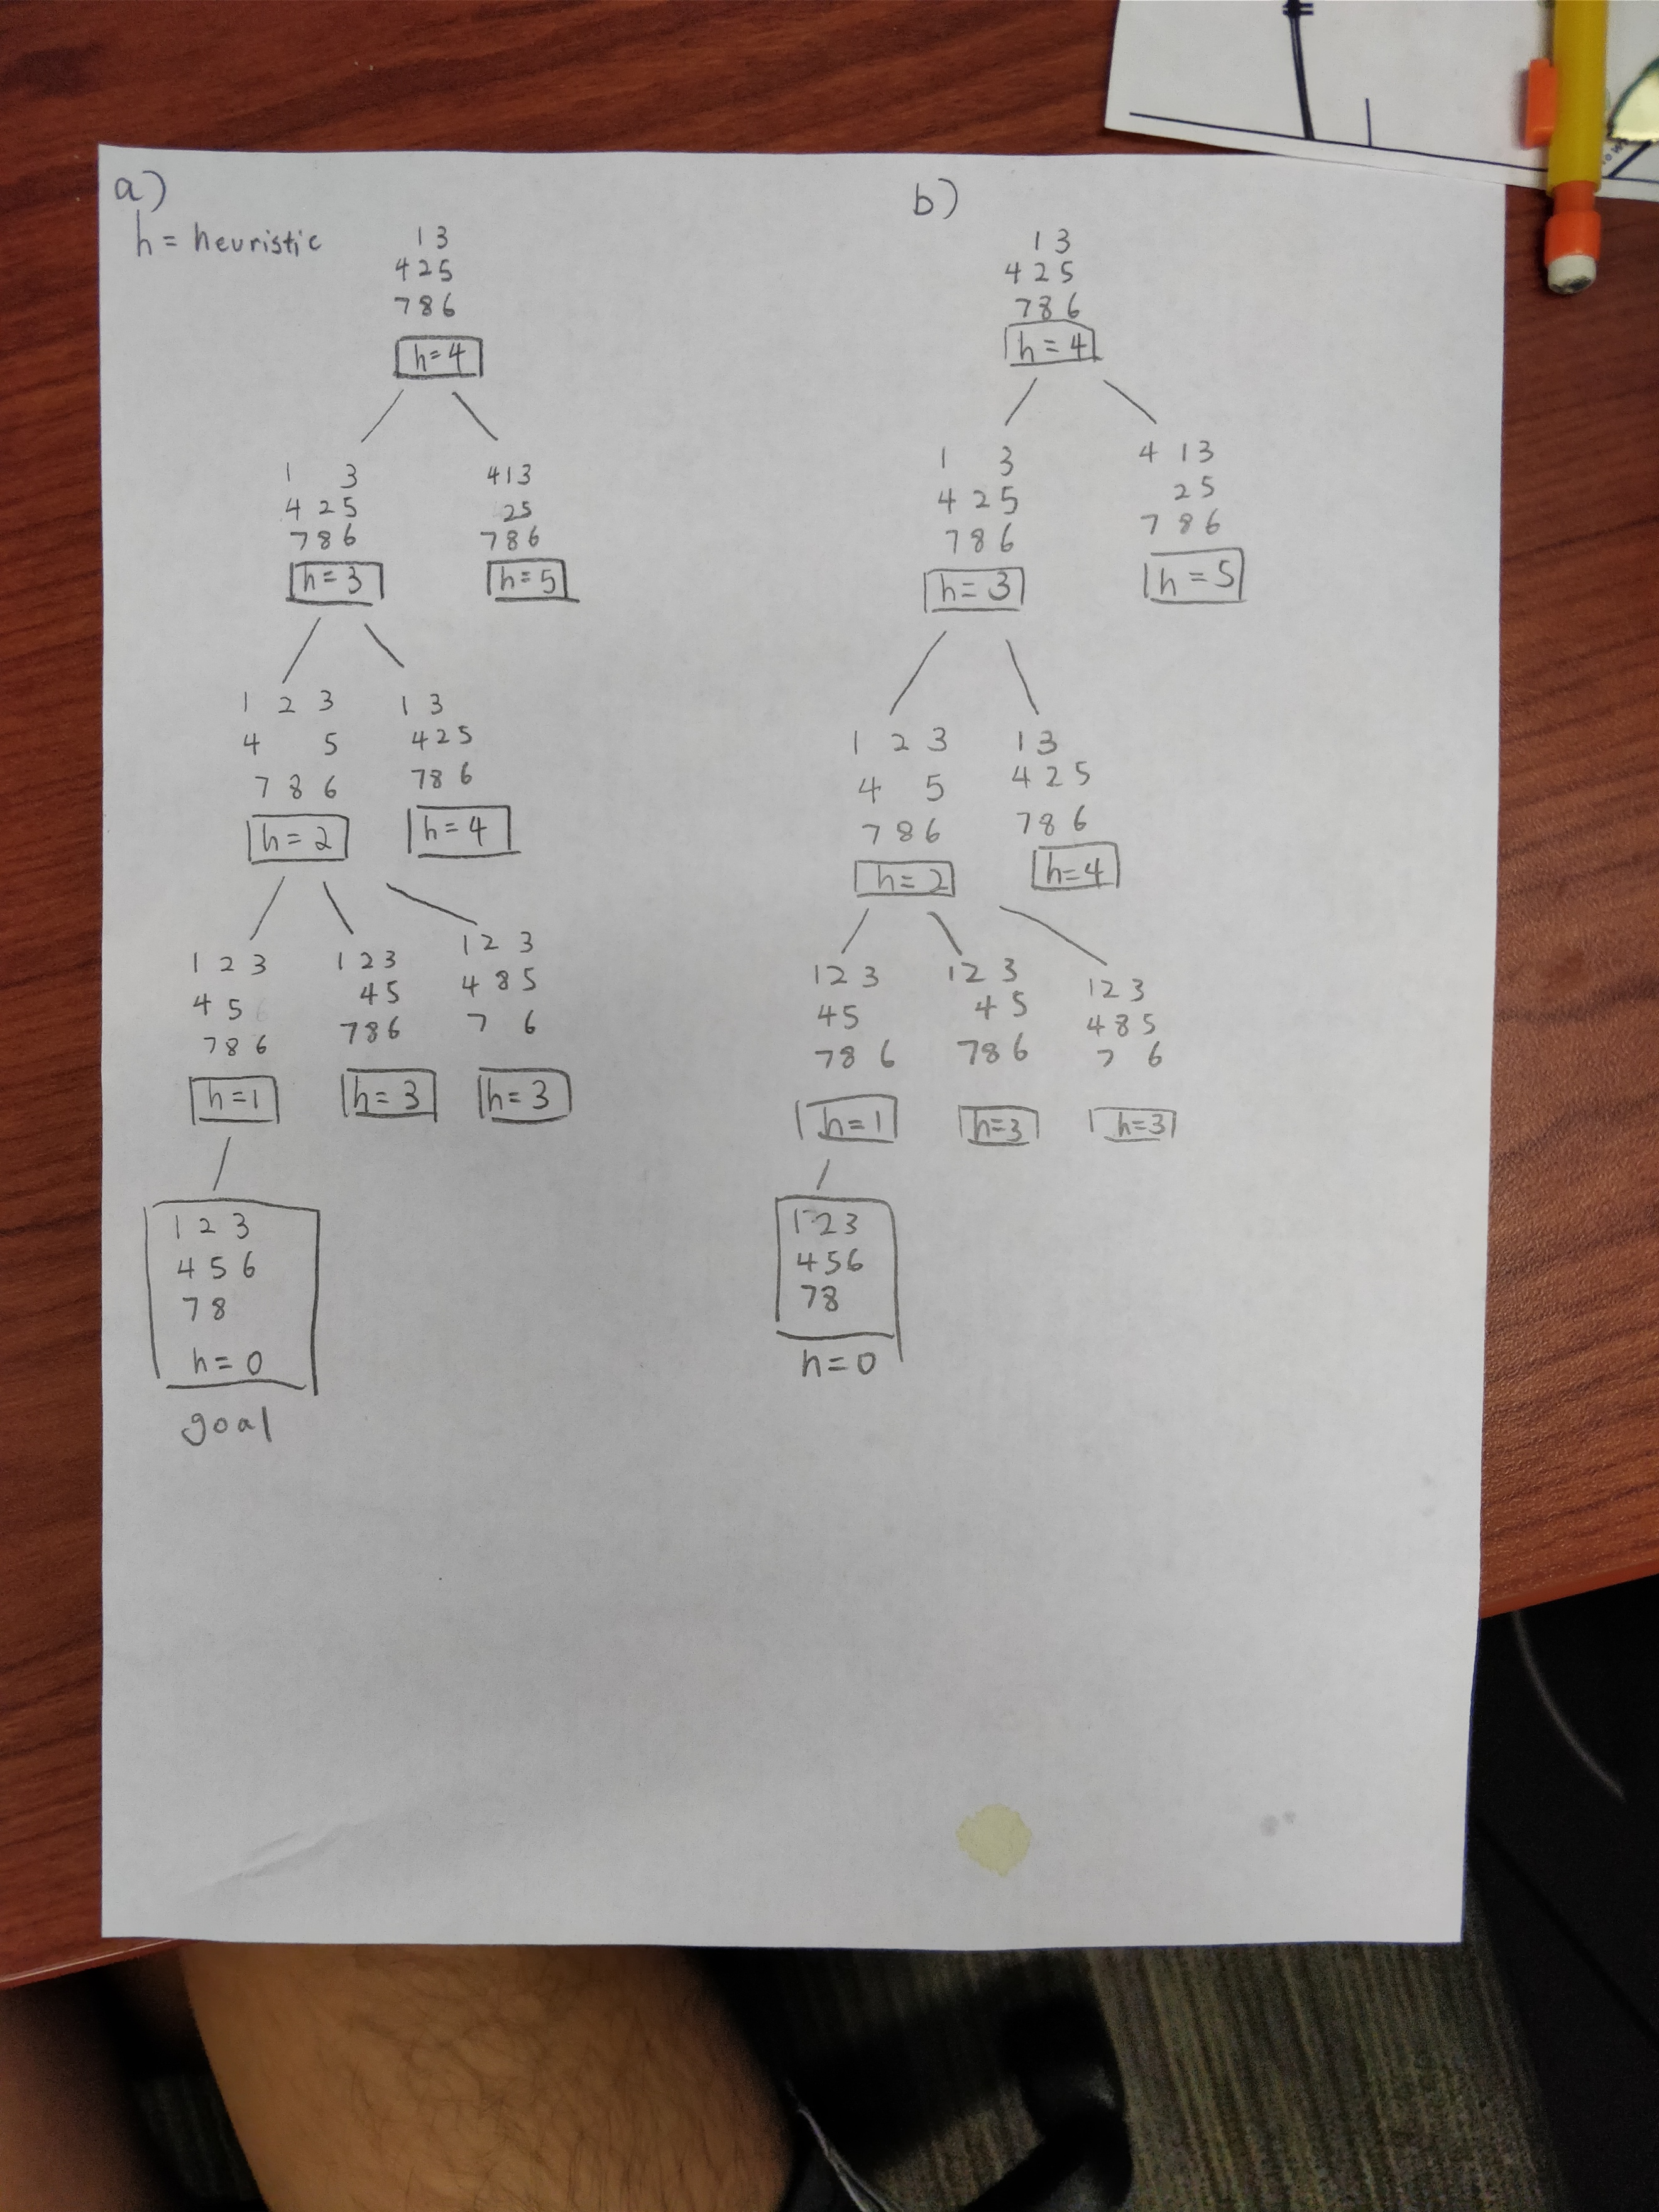 a)
h = heuristic
1 3
4 2 5
7 8 6
h = 4
1 3
4 2 5
7 8 6
h = 3
4 1 3
2 5
7 8 6
h = 5
1 2 3
4 5
7 8 6
h = 2
1 3
4 2 5
7 8 6
h = 4
1 2 3
4 5
7 8 6
h = 1
1 2 3
4 5
7 8 6
h = 3
1 2 3
4 8 5
7 6
h = 3
1 2 3
4 5 6
7 8
h = 0
goal
b)
1 3
4 2 5
7 8 6
h = 4
1 3
4 2 5
7 8 6
h = 3
4 1 3
2 5
7 8 6
h = 5
1 2 3
4 5
7 8 6
h = 2
1 3
4 2 5
7 8 6
h = 4
1 2 3
4 5
7 8 6
h = 1
1 2 3
4 5
7 8 6
h = 3
1 2 3
4 8 5
7 6
h = 3
1 2 3
4 5 6
7 8
h = 0